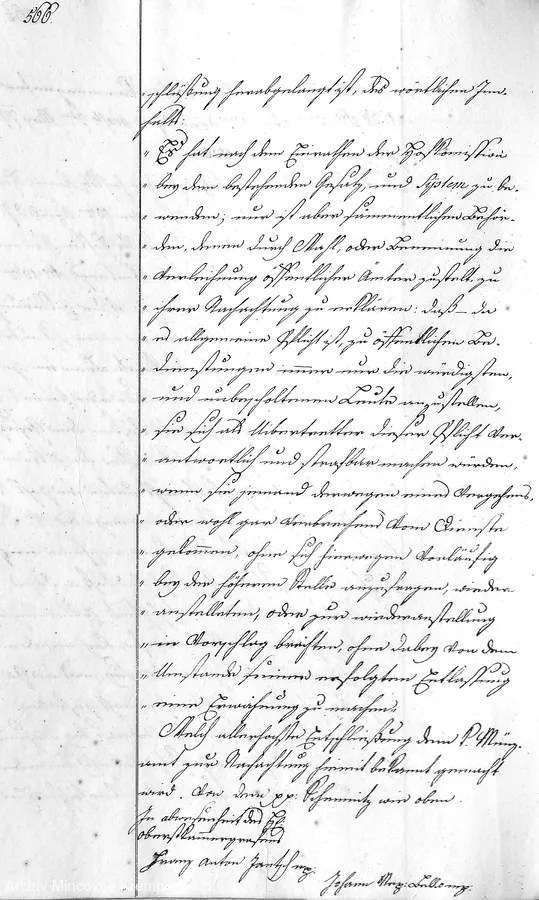 566.
schlüßung herabgelangt ist, des wörtlichen In-
halts:
" Es hat nach dem Einrathen der Hofkomission
" bey dem bestehenden Gesatz, und System zu be-
" wenden; nur ist aber sämmentlichen Behör-
" den, denen durch Wahl, oder Benennung die
" Verleihung öffentlicher Ämter zusteht, zu
" ihrer Nachachtung zu erklären: daß da
" es allgemeine Pflicht ist, zu öffentlichen Be-
" dienstungen immer nur die würdigsten,
" und unbescholtenen Leute anzustellen,
" sie sich als Übertretter dieser Pflicht ver-
" antwortlich und strafbar machen würden,
" wenn sie jemand derwegen eines Vergehens,
" oder wohl gar Verbrechens vom Dienste
" gekommen, ohne sich hierwegen vorläufig
" bey der höheren Stelle anzufragen, wieder
" anstelleten, oder zur wiederanstellung
" in Vorschlag brächten, ohne dabey von dem
" Umstande seiner erfolgten Entlassung
" eine Erwähnung zu machen.
Welch allerhöchste Entschließung dem K. Münz-
amt zur Nachachtung hiemit bekannt gemacht
wird. Von dem pp: Schemnitz wie oben.
In abwesenheit des H:
oberstkammergrafens
Franz Anton Jantsch mp.
Johann Bello mp.
Archiv Mincovne Kremnica